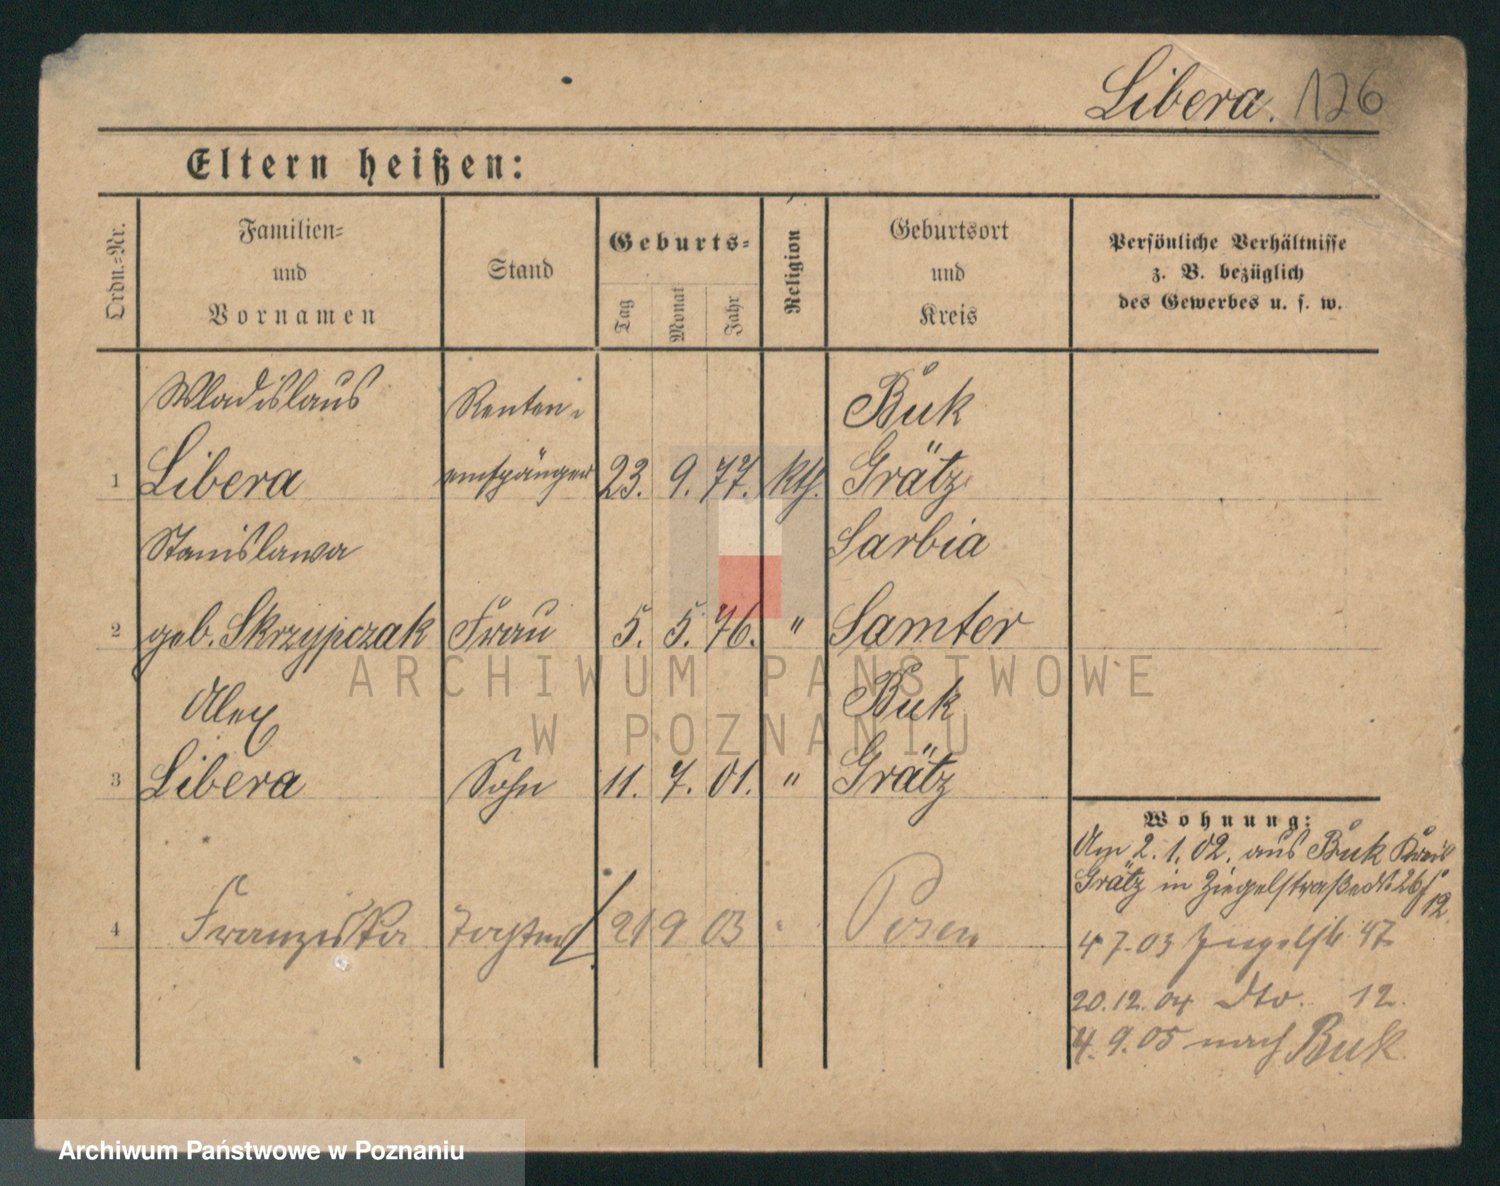 Libera. 126
Eltern heißen:
Ordn.=Nr.
Familien=
und
Vornamen
Stand
Geburts=
Tag
Monat
Jahr
Religion
Geburtsort
und
Kreis
Persönliche Verhältnisse
z. B. bezüglich
des Gewerbes u. s. w.
Wladislaus Renten- Buk
1 Libera empfänger 23. 9. 77. Kth. Grätz
Stanislawa Sarbia
2 geb. Skrzypczak Frau 5. 5. 76. " Samter
Alex Buk
3 Libera Sohn 11. 7. 01. " Grätz
4 Franziska Tochter 21 9 03 Posen
Wohnung:
Am 2. 1. 02. aus Buk Kreis
Grätz in Ziegelstraße
12
4 7. 03 Ziegelstr 47
20. 12. 04 dto. 12.
4. 9. 05 nach Buk
ARCHIWUM PAŃSTWOWE
W POZNANIU
Archiwum Państwowe w Poznaniu